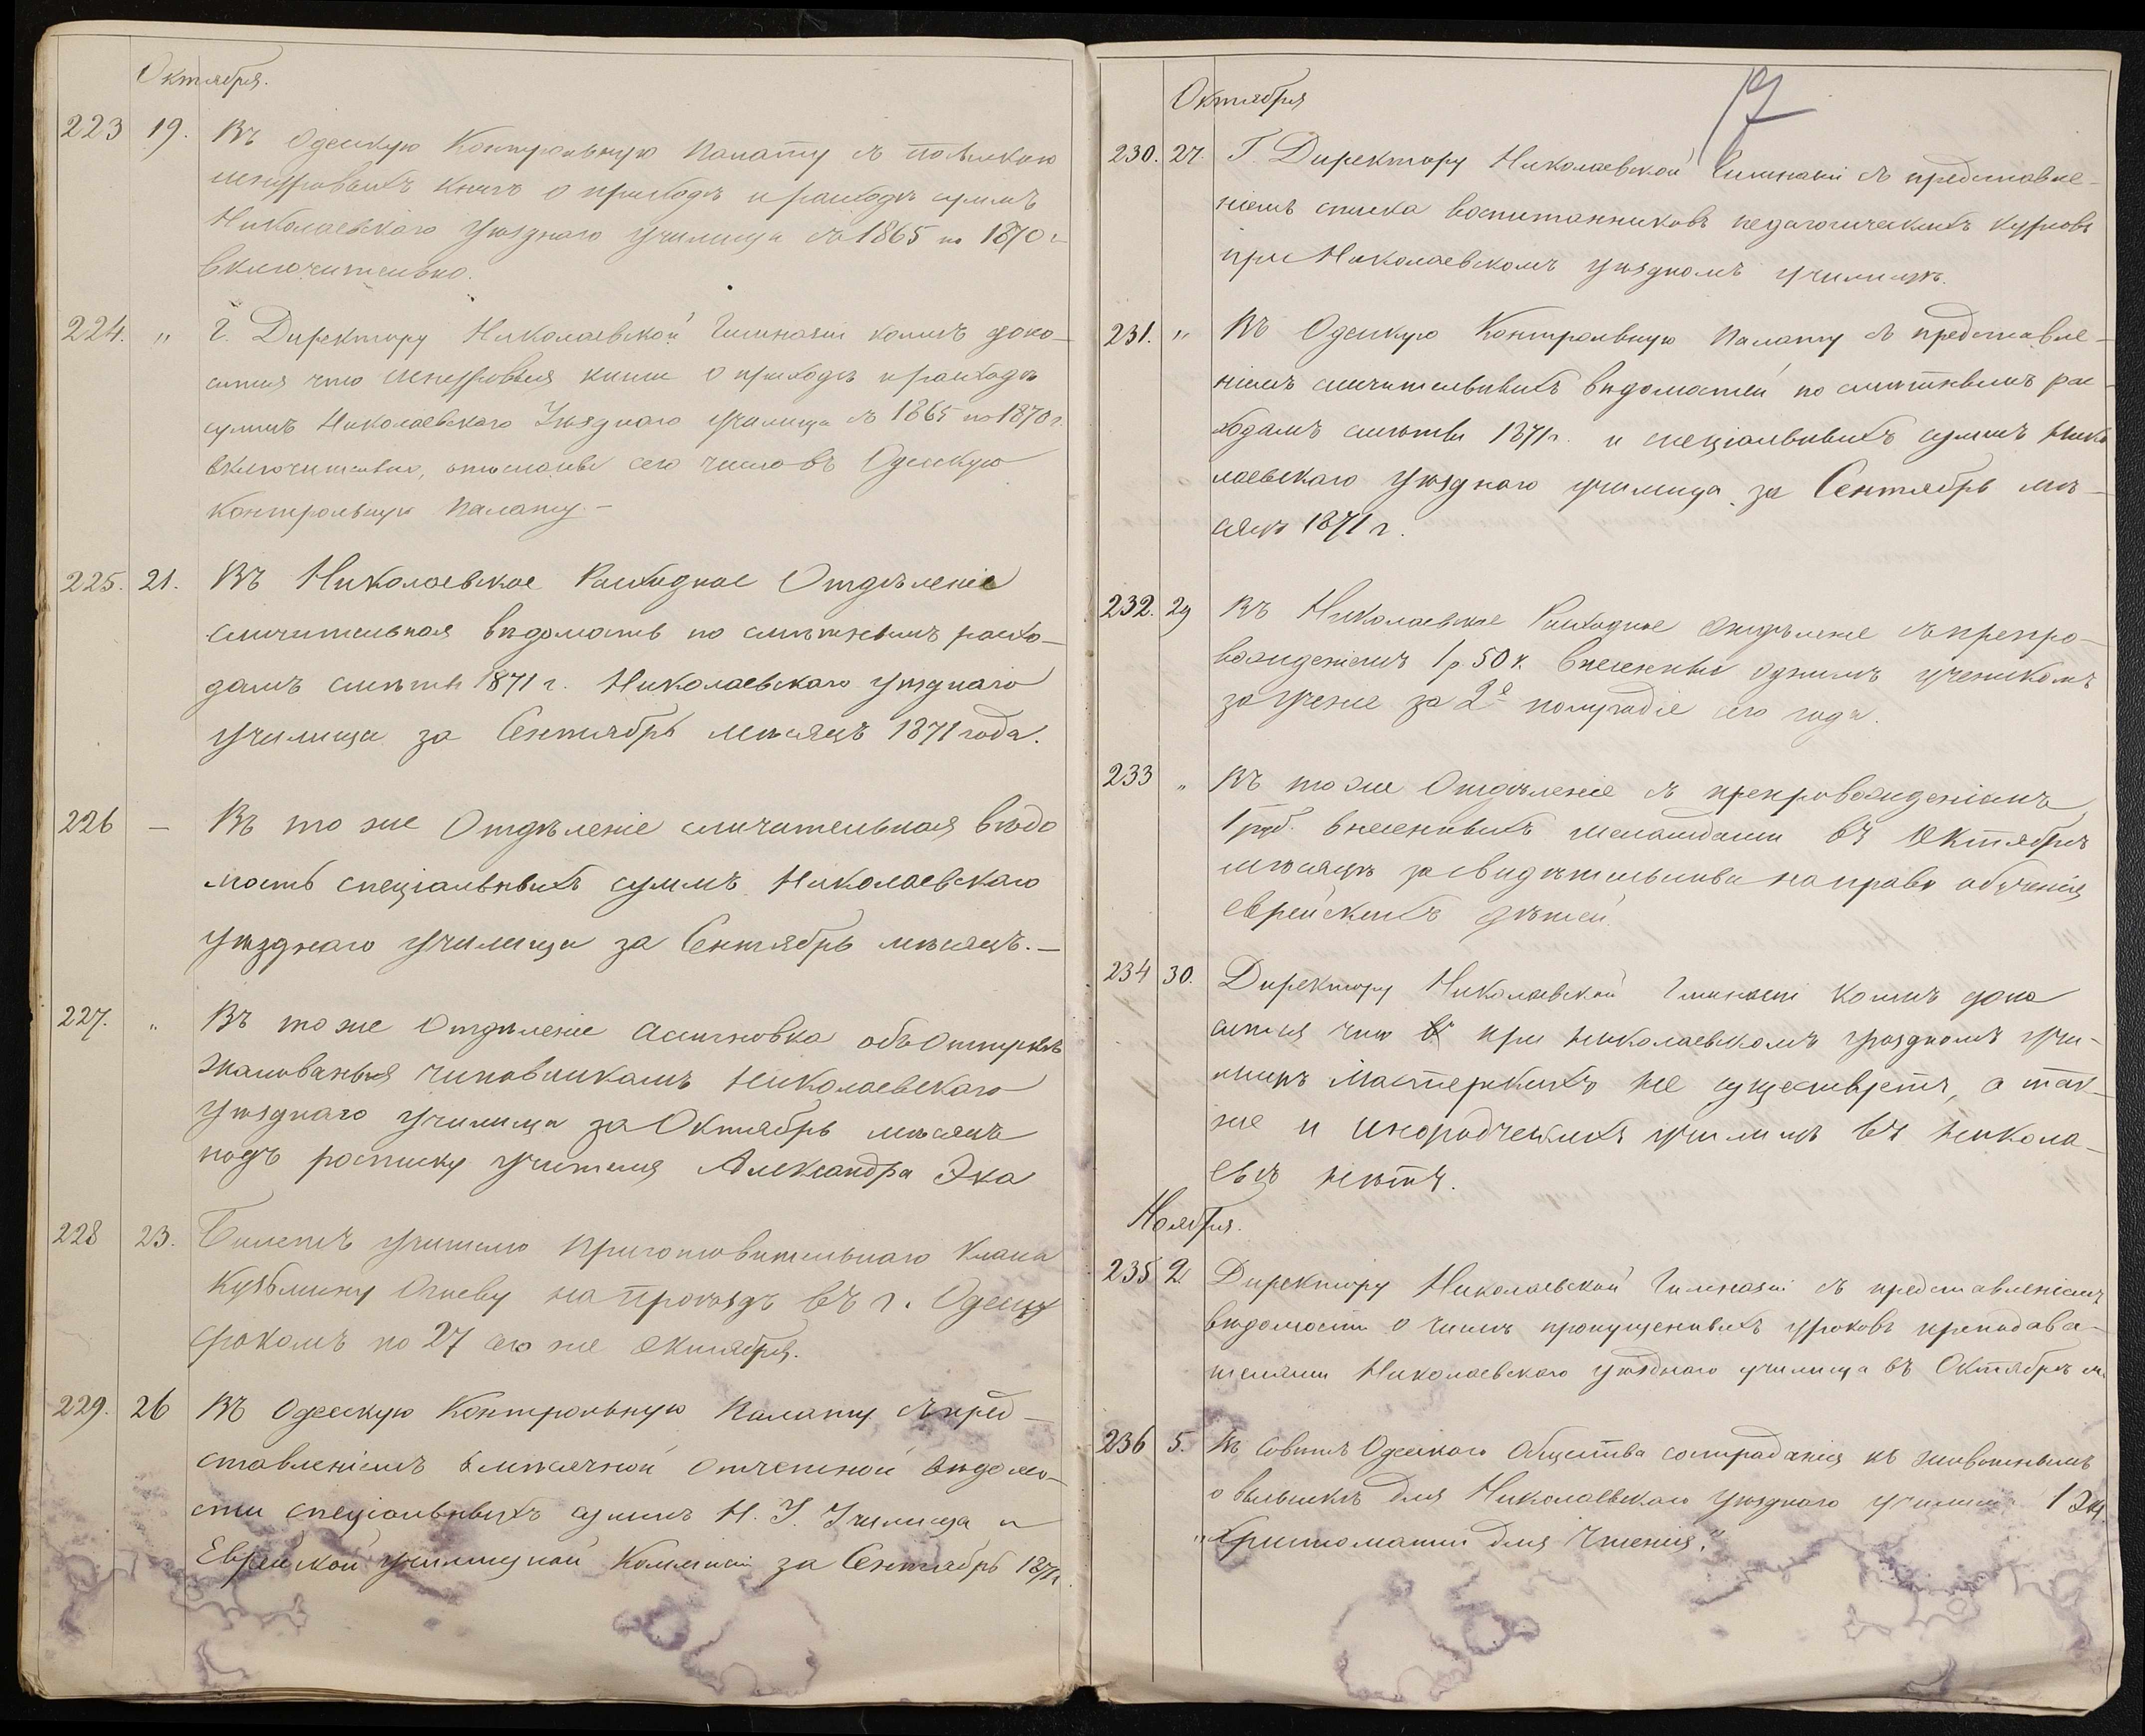 Октября.
223 19. Въ Одесскую Контрольную Палату съ посылкою
шнуровыхъ книгъ о приходѣ и расходѣ суммъ
Николаевскаго уѣзднаго училища съ 1865 по 1870 г.
включительно.
224. „ Г. Директору Николаевской Гимназіи коимъ доно-
сится что шнуровыя книги о приходѣ и расходѣ
суммъ Николаевскаго Уѣзднаго училища съ 1865 по 1870 г.
включительно, отосланы сего числа въ Одесскую
Контрольную Палату. –
225. 21. Въ Николаевское Расходное Отдѣленіе
сличительная вѣдомость по смѣтнымъ расхо-
дамъ смѣты 1871 г. Николаевскаго уѣзднаго
училища за Сентябрь мѣсяцъ 1871 года.
226 — Въ то же Отдѣленіе сличительная вѣдо
мость спеціальныхъ суммъ Николаевскаго
уѣзднаго училища за Сентябрь мѣсяцъ. —
227. „ Въ то же Отдѣленіе ассигновка объ отпускѣ
жалованья чиновникамъ Николаевскаго
уѣзднаго училища за Октябрь мѣсяцъ
подъ росписку учителя Александра Эка
228 23. Билетъ учителю приготовительнаго класса
Кузьмину Огиеву на проѣздъ въ г. Одессу
срокомъ по 27 сего же октября.
229. 26 Въ Одесскую Контрольную Палату съ пред-
ставленіемъ мѣсячной отчетной вѣдомо-
сти спеціальныхъ суммъ Н. У. Училища и
Еврейской училищной Коммисіи за Сентябрь 1871 г.
17
Октября
230. 27. Г. Директору Николаевской Гимназіи съ представле-
ніемъ списка воспитанниковъ педагогическихъ курсовъ
при Николаевскомъ уѣздномъ училищѣ.
231. „ Въ Одесскую Контрольную Палату съ представле-
ніемъ сличительныхъ вѣдомостей по смѣтнымъ рас-
ходамъ смѣты 1871 г. и спеціальныхъ суммъ Нико
лаевскаго уѣзднаго училища за Сентябрь мѣ-
сяцъ 1871 г.
232. 29 Въ Николаевское Расходное отдѣленіе съ препро-
вожденіемъ 1 р. 50 к. внесенныхъ однимъ ученикомъ
за ученіе за 2е полугодіе сего года.
233 „ Въ то же Отдѣленіе съ препровожденіемъ
1 руб. внесенныхъ меламдами въ Октябрѣ
мѣсяцѣ за свидѣтельства на право обученія
еврейскихъ дѣтей.
234 30. Директору Николаевской Гимназіи коимъ доно
сится что при Николаевскомъ уѣздномъ учи-
лищѣ мастерскихъ не существуетъ, а так-
же и инородческихъ училищъ въ Никола-
евѣ нѣтъ.
Ноября.
235 2 Директору Николаевской Гимназіи съ представленіемъ
вѣдомости о числѣ пропущенныхъ уроковъ преподава-
телями Николаевскаго уѣзднаго училища въ Октябрѣ м.
236 5. Въ Совѣтъ Одесскаго Общества состраданія къ животнымъ
о высылкѣ для Николаевскаго Уѣзднаго училища 1 экз.
„Христоматіи для чтенія".